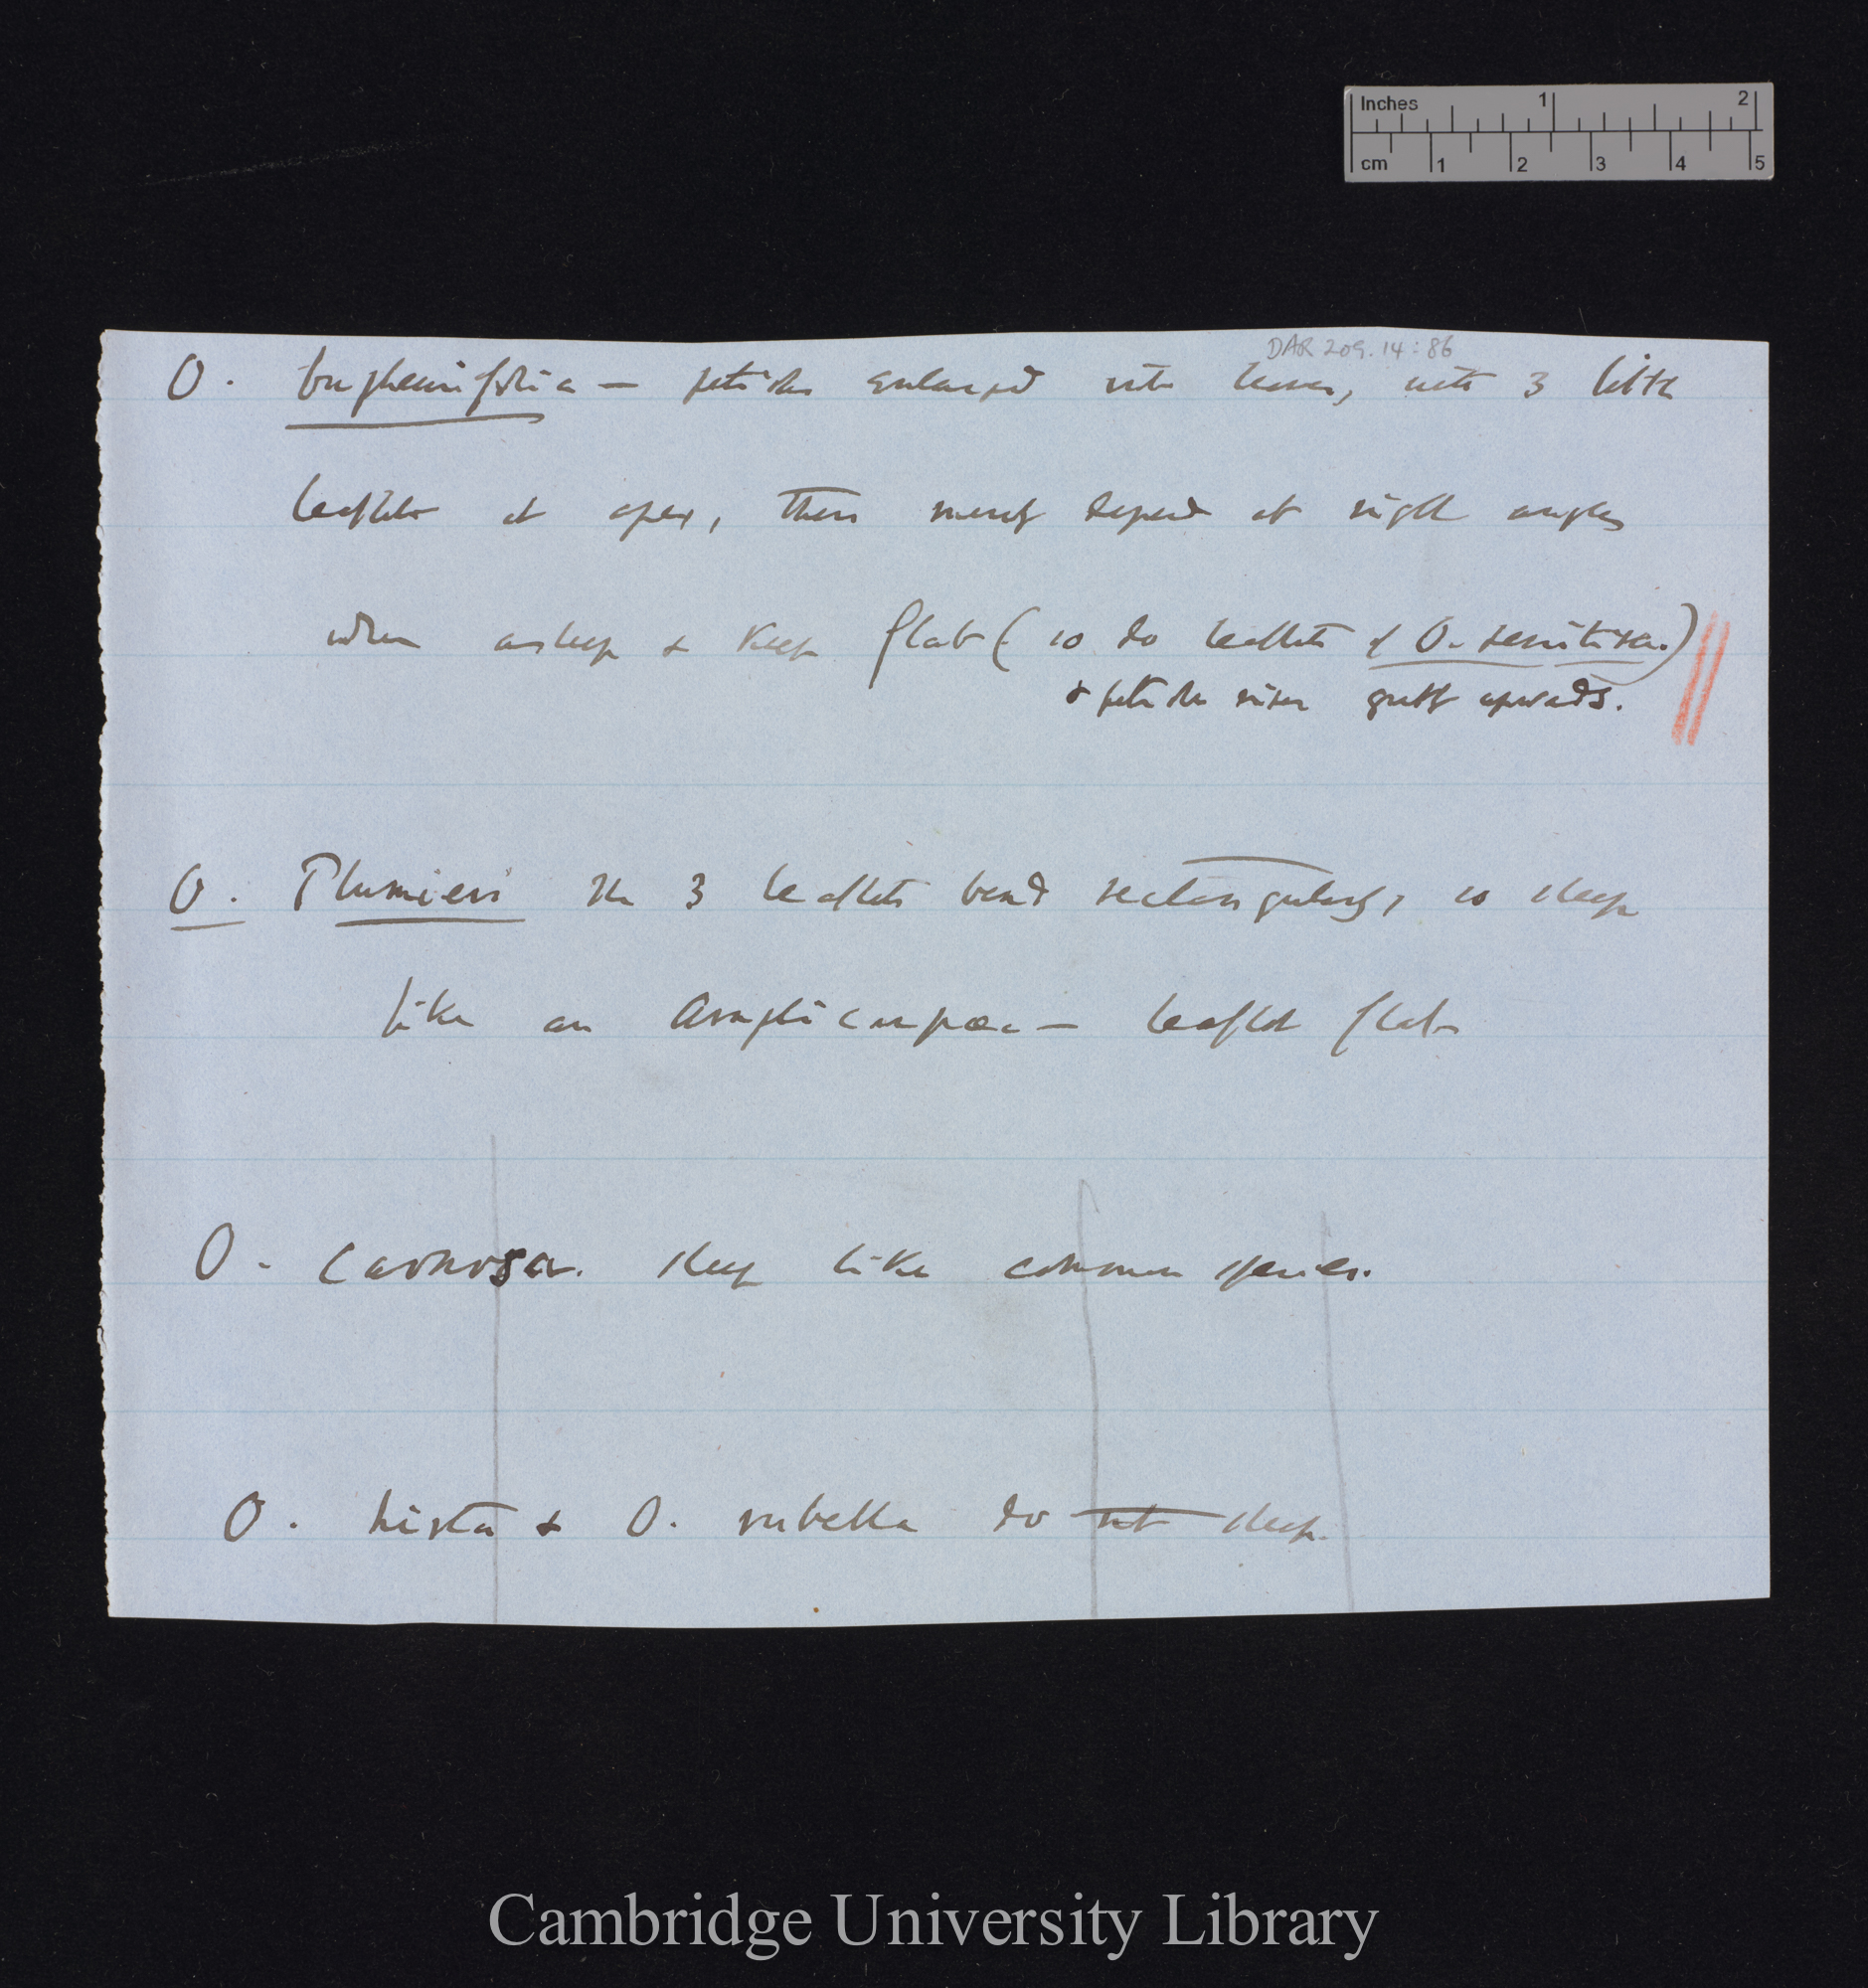 Inches 1 2
cm 1 2 3 4 5
DAR 209.14:86
O. bupleurifolia — petioles enlarged into leaves, with 3 little
leaflets at apex, these merely depend at right angles
when asleep & keep flat (so do leaflets of O. sensitiva.)
& petiole rises greatly upwards.
O. Plumieri the 3 leaflets bend rectangularly, so sleep
like an Amphicarpœa — leaflet flat
O. carnosa. sleep like common species.
O. hirta & O. rubella do not sleep.
Cambridge University Library